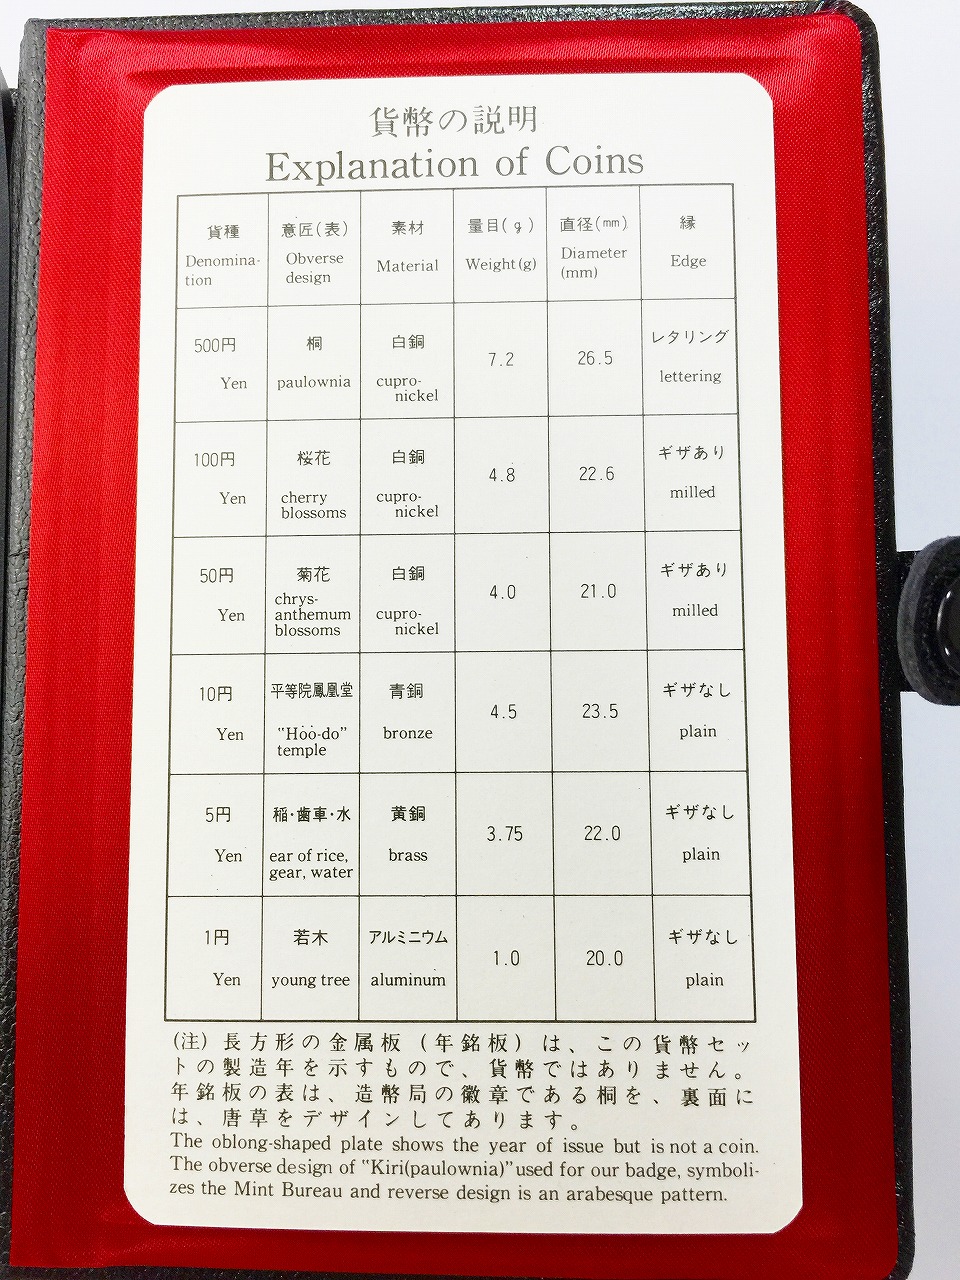 貨幣の説明
Explanation of Coins
貨種 意匠(表) 素材 量目(g) 直径(mm) 縁
Denomina- Obverse Material Weight(g) Diameter Edge
tion design (mm)
500円 桐 白銅 7.2 26.5 レタリング
Yen paulownia cupro- lettering
nickel
100円 桜花 白銅 4.8 22.6 ギザあり
Yen cherry cupro- milled
blossoms nickel
50円 菊花 白銅 4.0 21.0 ギザあり
chrys-
Yen anthemum cupro- milled
blossoms nickel
10円 平等院鳳凰堂 青銅 4.5 23.5 ギザなし
Yen "Hōō-do" bronze plain
temple
5円 稲・歯車・水 黄銅 3.75 22.0 ギザなし
Yen ear of rice, brass plain
gear, water
1円 若木 アルミニウム 1.0 20.0 ギザなし
Yen young tree aluminum plain
(注) 長方形の金属板（年銘板）は、この貨幣セッ
トの製造年を示すもので、貨幣ではありません。
年銘板の表は、造幣局の徽章である桐を、裏面に
は、唐草をデザインしてあります。
The oblong-shaped plate shows the year of issue but is not a coin.
The obverse design of "Kiri(paulownia)" used for our badge, symboli-
zes the Mint Bureau and reverse design is an arabesque pattern.